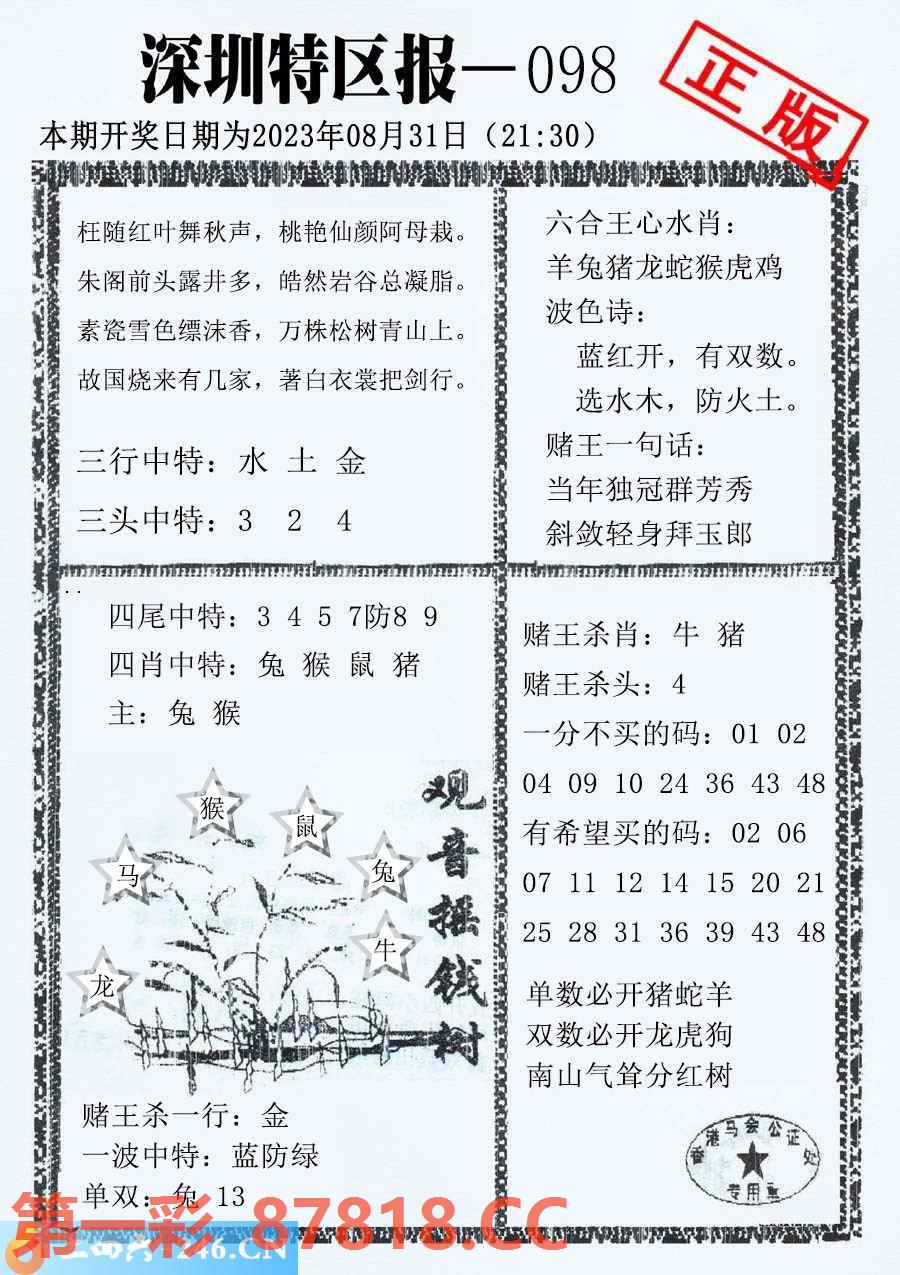 深圳特区报—098
正版
本期开奖日期为2023年08月31日（21:30）
枉随红叶舞秋声，桃艳仙颜阿母栽。
朱阁前头露井多，皓然岩谷总凝脂。
素瓷雪色缥沫香，万株松树青山上。
故国烧来有几家，著白衣裳把剑行。
三行中特：水 土 金
三头中特：3 2 4
六合王心水肖：
羊兔猪龙蛇猴虎鸡
波色诗：
蓝红开，有双数。
选水木，防火土。
赌王一句话：
当年独冠群芳秀
斜敛轻身拜玉郎
四尾中特：3 4 5 7防8 9
四肖中特：兔 猴 鼠 猪
主：兔 猴
观音摇钱树
猴
鼠
马
兔
牛
龙
赌王杀一行：金
一波中特：蓝防绿
单双：兔 13
赌王杀肖：牛 猪
赌王杀头：4
一分不买的码：01 02
04 09 10 24 36 43 48
有希望买的码：02 06
07 11 12 14 15 20 21
25 28 31 36 39 43 48
单数必开猪蛇羊
双数必开龙虎狗
南山气耸分红树
香港马会公证处
专用章
第一彩 87818.CC
246.CN